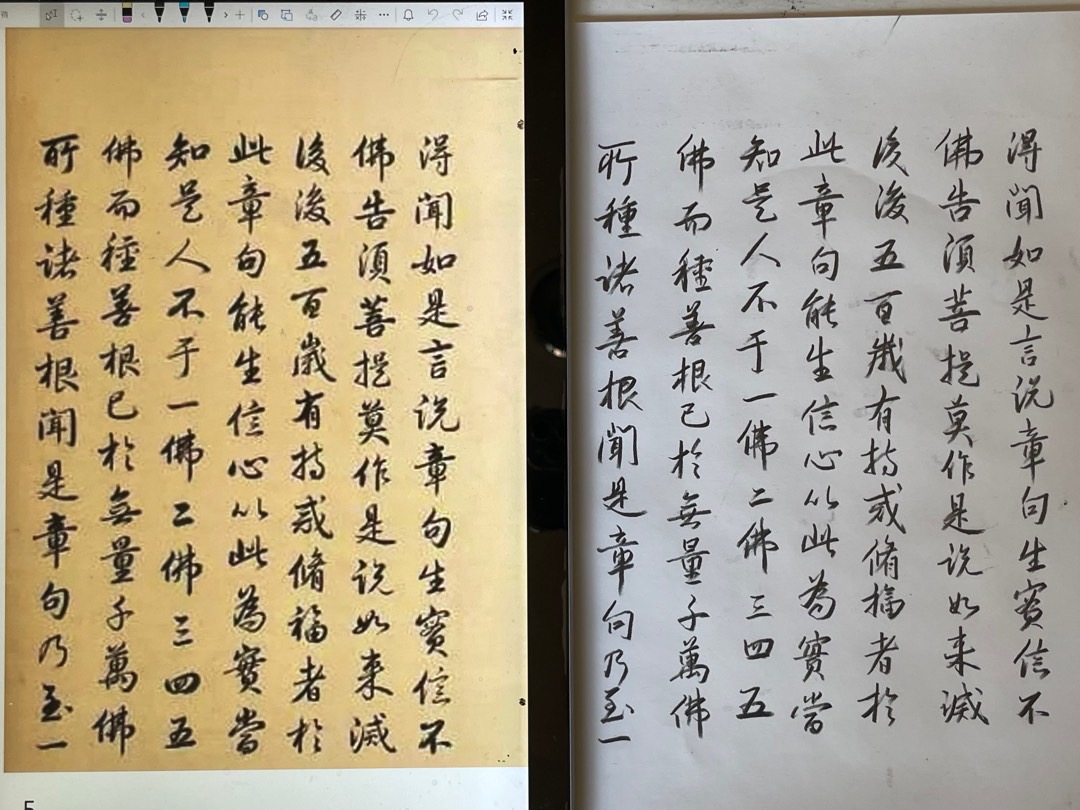 得聞如是言説章句生實信不
佛告須菩提莫作是説如来滅
後後五百歲有持戒脩福者於
此章句能生信心以此為實當
知是人不于一佛二佛三四五
佛而種善根已於無量千萬佛
所種諸善根聞是章句乃至一
5
得聞如是言説章句生實信不
佛告須菩提莫作是説如来滅
後後五百歲有持戒脩福者於
此章句能生信心以此為實當
知是人不于一佛二佛三四五
佛而種善根已於無量千萬佛
所種諸善根聞是章句乃至一